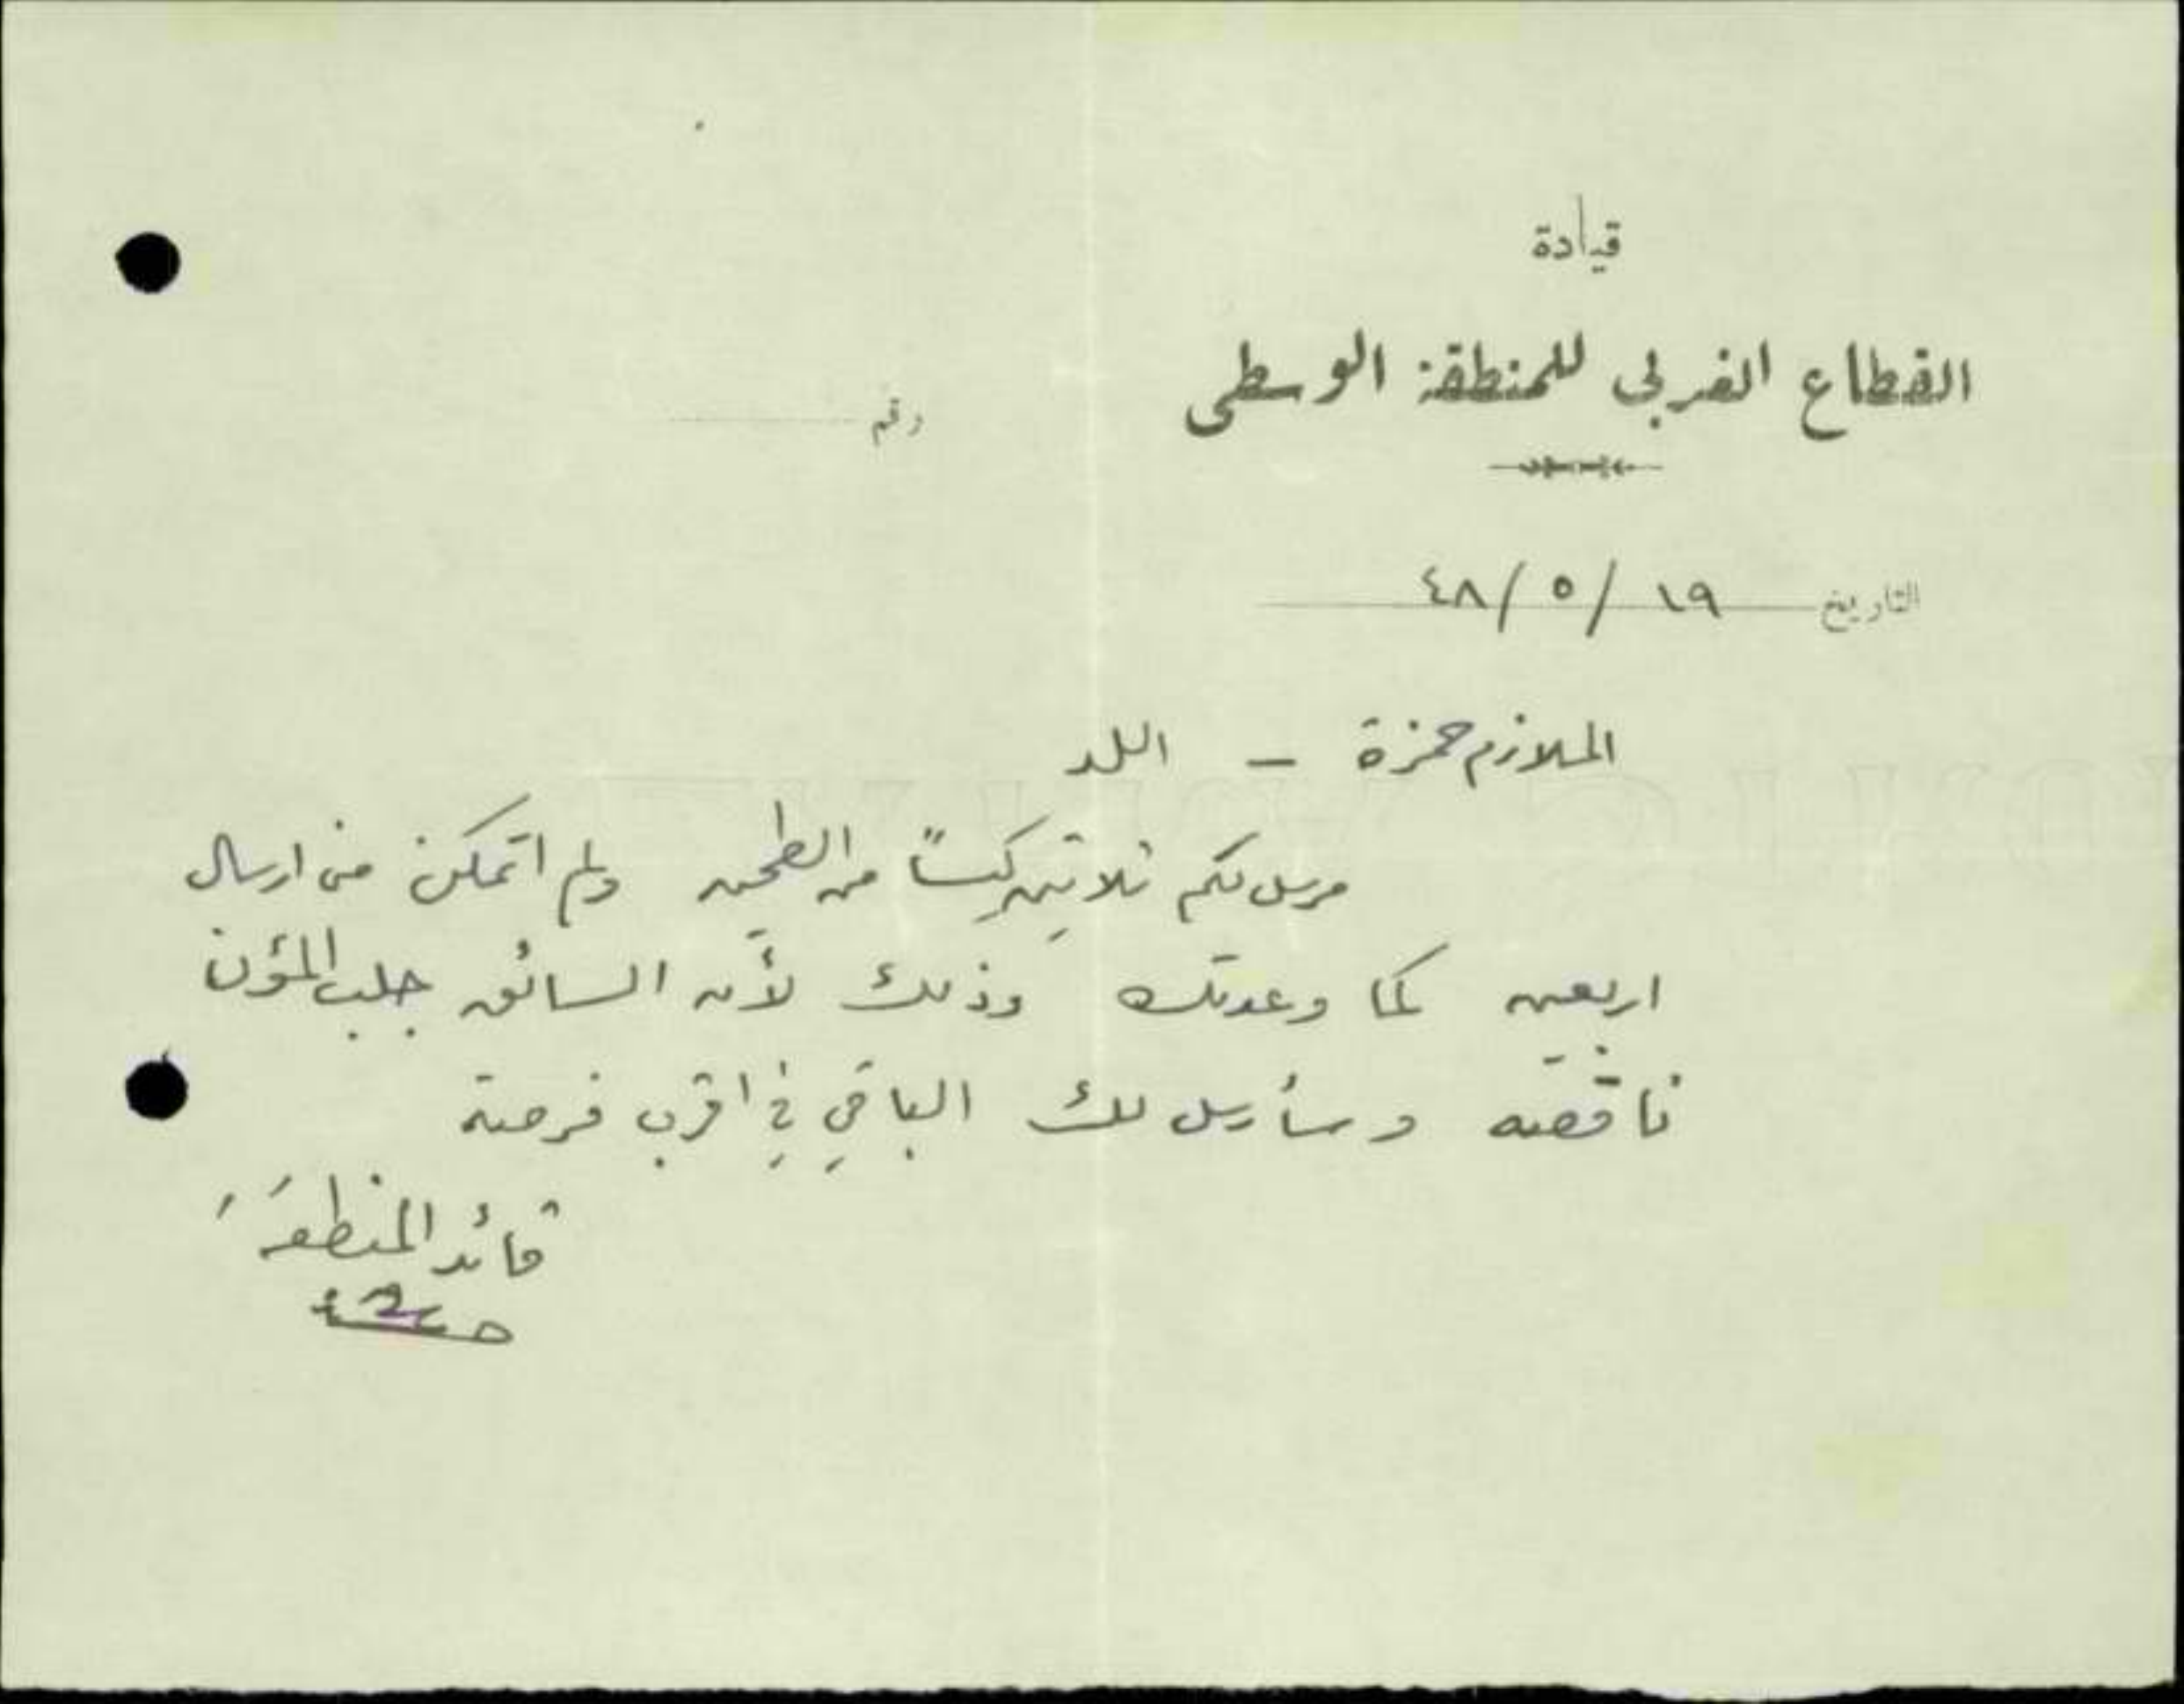 قيادة
القطاع الغربي للمنطقة الوسطى
رقم
التاريخ ١٩ / ٥ / ٤٨
الملازم حمزة - اللد
مرسل لكم ثلاثين كيسًا من الطحين ولم اتمكن من ارسال
اربعين كما وعدتك وذلك لأن السائق جلب المؤن
ناقصة وسأرسل لك الباقي في اقرب فرصة
قائد المنطقة